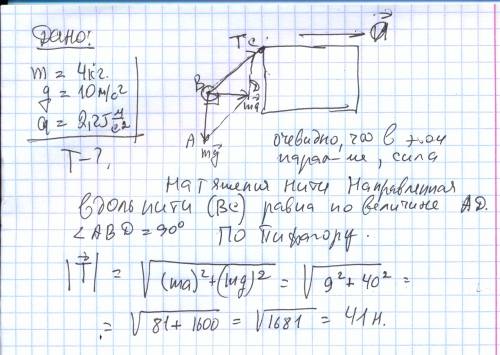 Дано:
m = 4кг.
g = 10 м/с2
a = 2,25 м/с2
T - ?
T C
a
B
D
ma
A
mg
очевидно, что в этом
парал-ме, сила
натяжения нити направленная
вдоль нити (BC) равна по величине AD.
∠ABD = 90° По Пифагору.
|T| = √(ma)²+(mg)² = √9²+40² =
= √81+1600 = √1681 = 41 н.